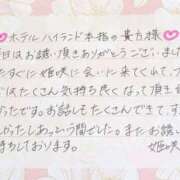 ホテルハイランド本指の貴方様
日はお誘い頂きありがとうございまし
たすぐに姫咲に会いに来てくれて、
はたくさん気持ち良くなって頂き
ったです。お話しもたくさんできて、す
かったしあっという間でした。またお誘い
待ちしております。
姫咲